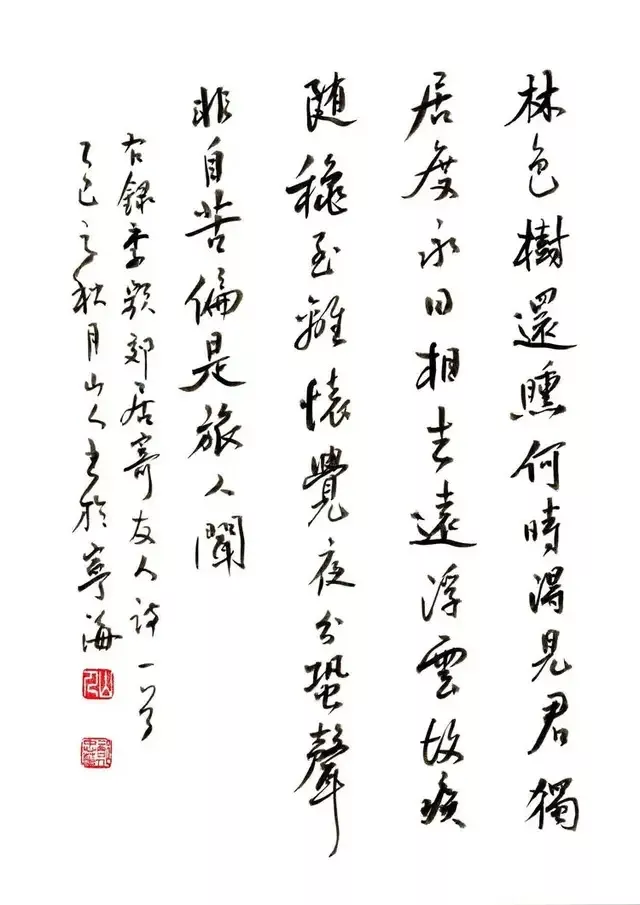 林色樹還曛何時得見君獨
居度永日相去遠浮雲故疾
随穐至離懷覺夜分蛩聲
非自苦偏是旅人聞
右録李頻郊居寄友人詩一首
乙巳秋月山人書於寧海